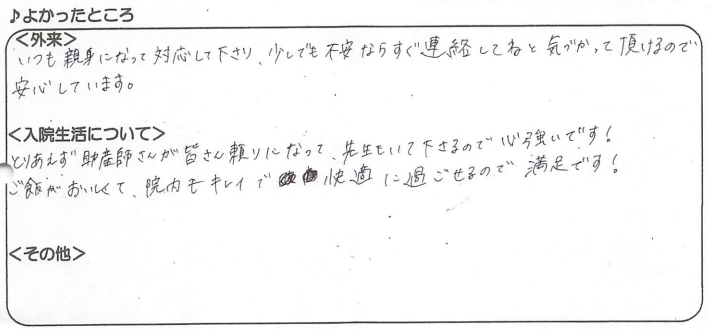 ♪よかったところ
<外来>
いつも親身になって対応して下さり、少しでも不安ならすぐ連絡してねと気づかって頂けるので
安心しています。
<入院生活について>
とりあえず助産師さんが皆さん頼りになって、先生もいて下さるので心強いです!
ご飯がおいしくて、院内もキレイで快適に過ごせるので満足です!
<その他>